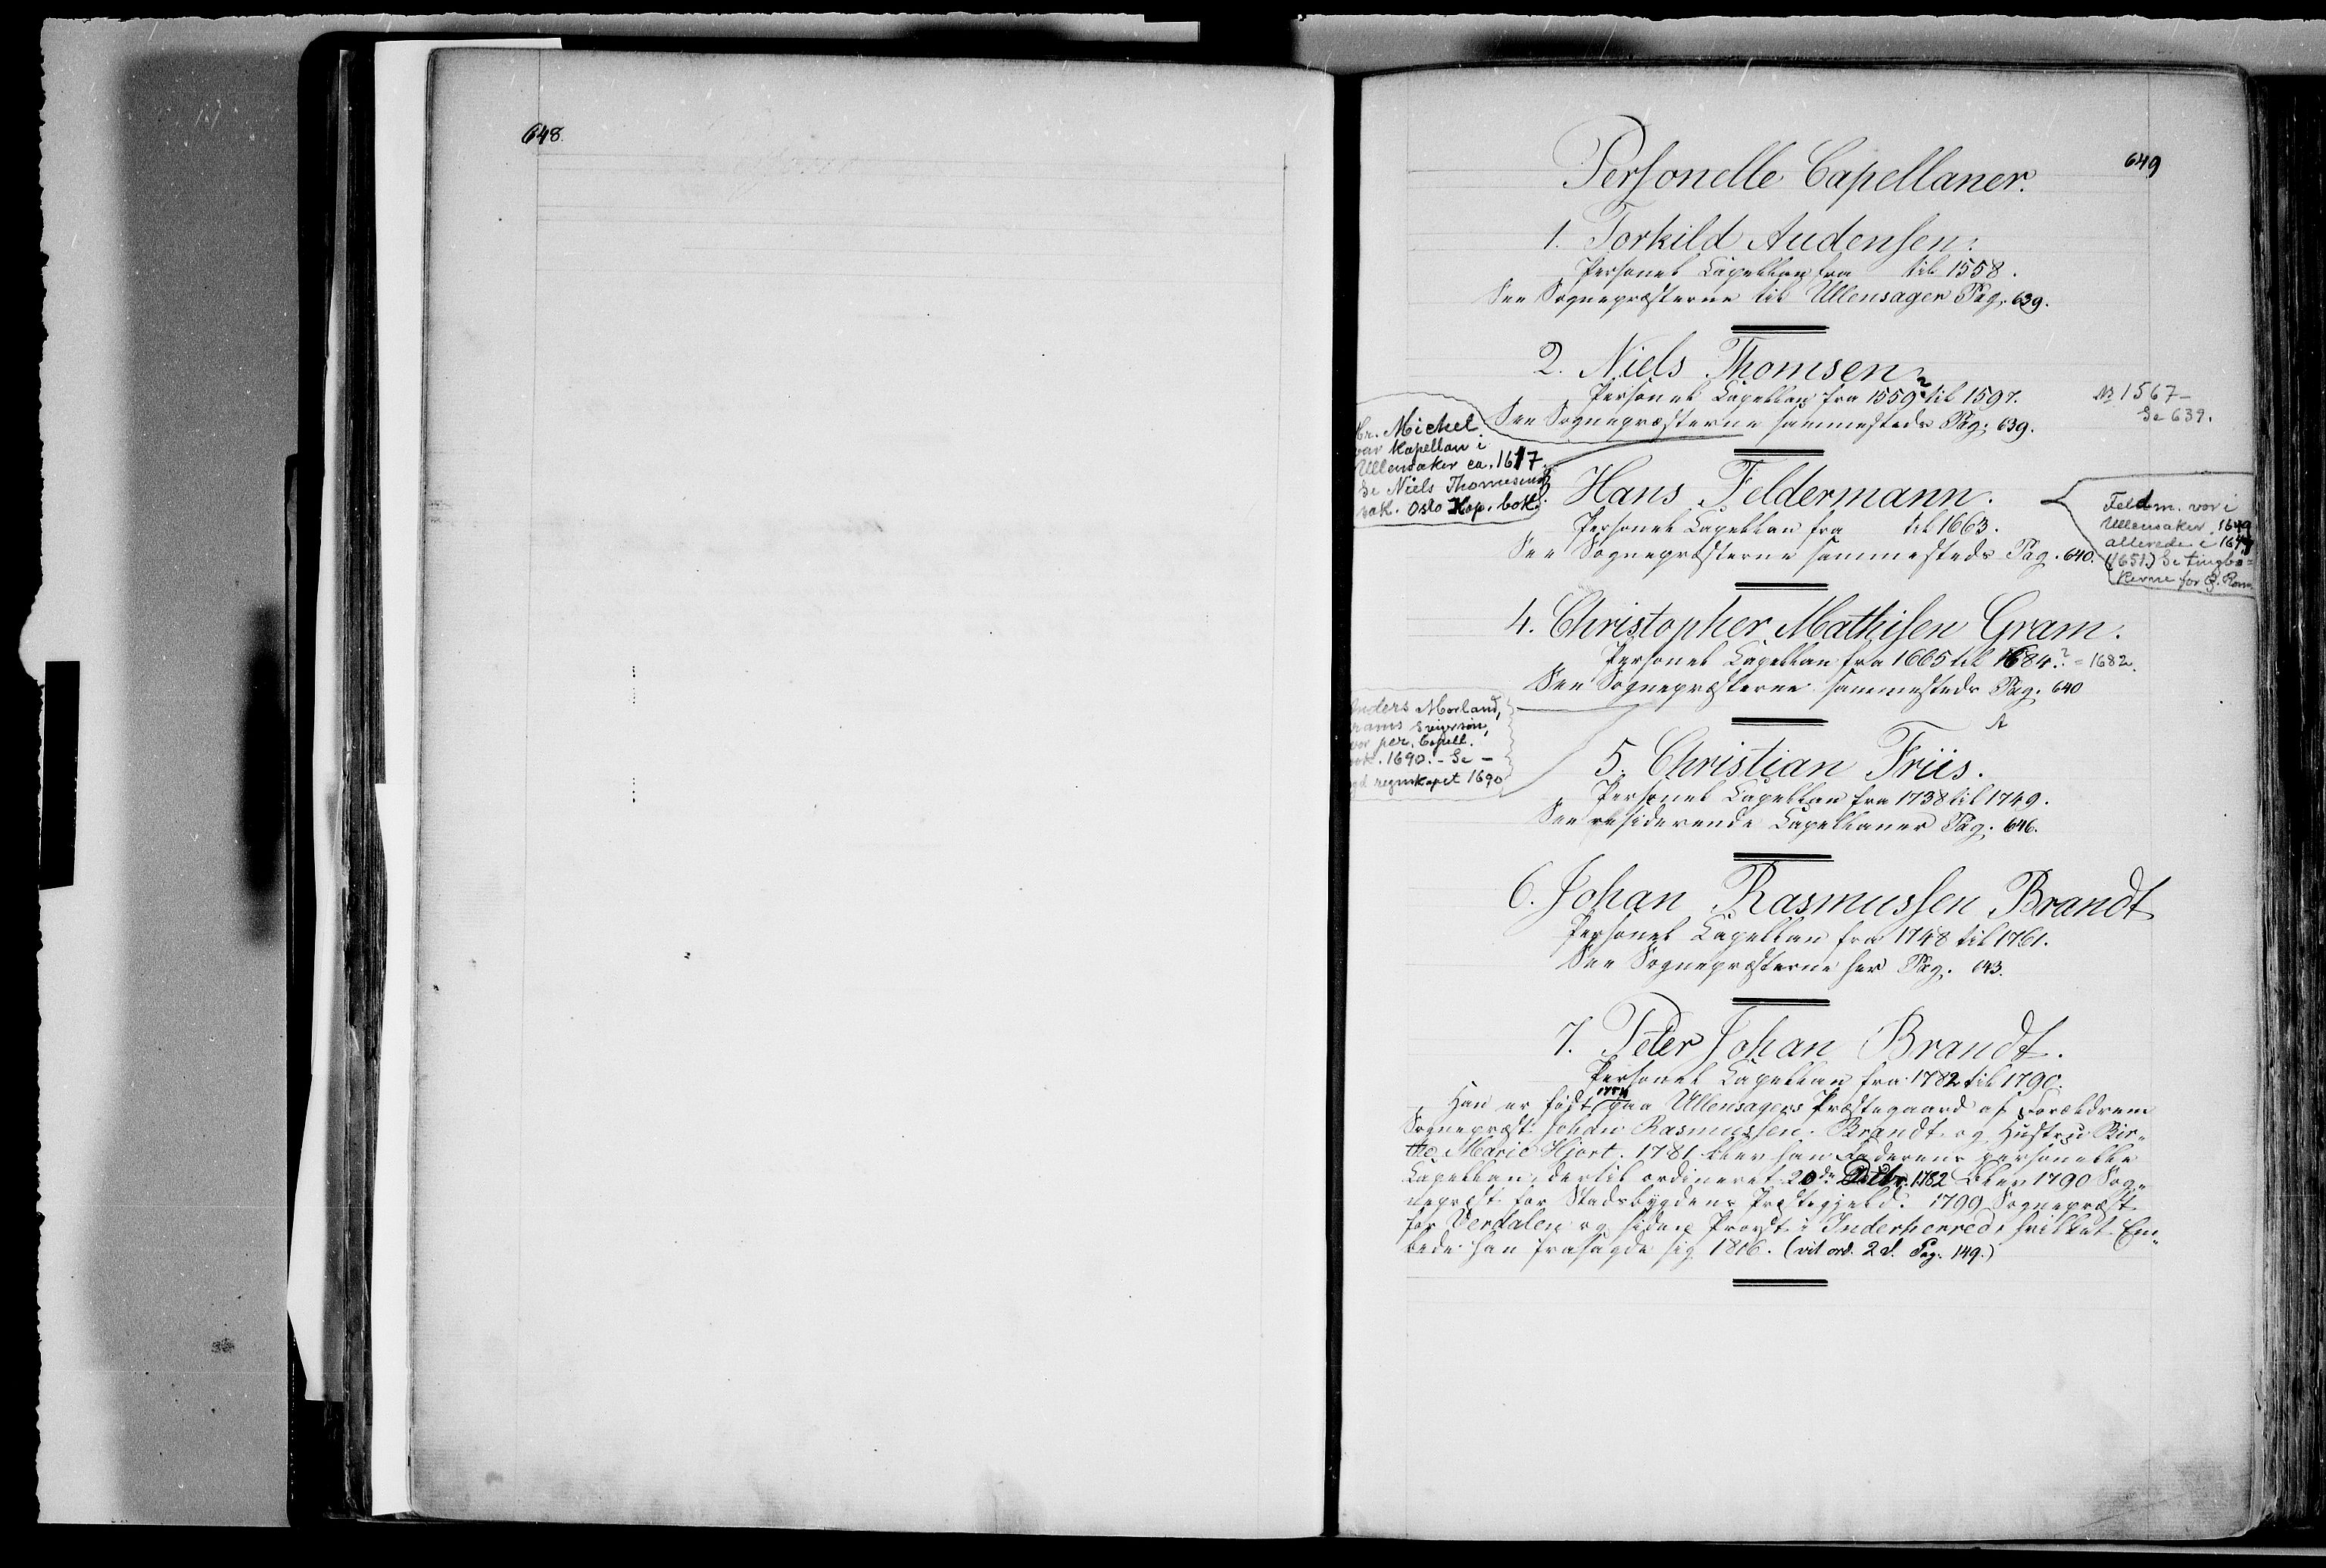 648.
649
Personelle Capellaner.
1. Torkild Audensen.
Personel Capellan fra til 1558.
See Sognepræsterne til Ullensager Pag. 639.
2. Niels Thomsen
Personel Capellan fra 1559? til 1597.
See Sognepræsterne sammesteds Pag. 639.
NB 1567-
Se 639.
Hr. Michel
var Kapellan i
Ullensaker ca. 1617.
Se Niels Thomesens
sak. Oslo Kap. bok.
3. Hans Feldermann.
Personel Capellan fra til 1663.
See Sognepræsterne sammesteds Pag. 640.
Feldm. var i
Ullensaker 1649
allerede i 1647
(1651) Se tingbø=
kerne for Ø. Rom
4. Christopher Mathisen Gram.
Personel Capellan fra 1665 til 1684.? = 1682.
See Sognepræsterne sammesteds Pag. 640
Anders Morland,
Grams svigersøn,
var per. Capell.
1690. - Se -
regnskapet 1690
5. Christian Friis.
Personel Capellan fra 1738 til 1749.
See residerende Capellaner Pag. 646.
6. Johan Rasmussen Brandt
Personel Capellan fra 1748 til 1761.
See Sognepræsterne her Pag. 643.
7. Peter Johan Brandt.
Personel Capellan fra 1782 til 1790.
Han er født paa Ullensagers Præstegaard af Forældrene
Sognepræst Johan Rasmussen Brandt og Hustru Bir„
the Marie Hjort. 1781 blev han Faderens personelle
Capellan, dertil ordineret 20de 1782 blev 1790 Sog„
nepræst for Stadsbygdens Præstegjeld. 1799 Sognepræst
for Verdalen og siden Provst i Inderherred, hvilket Em„
bede han frasagde sig 1816. (vit ord. 2 d. Pag. 149.)